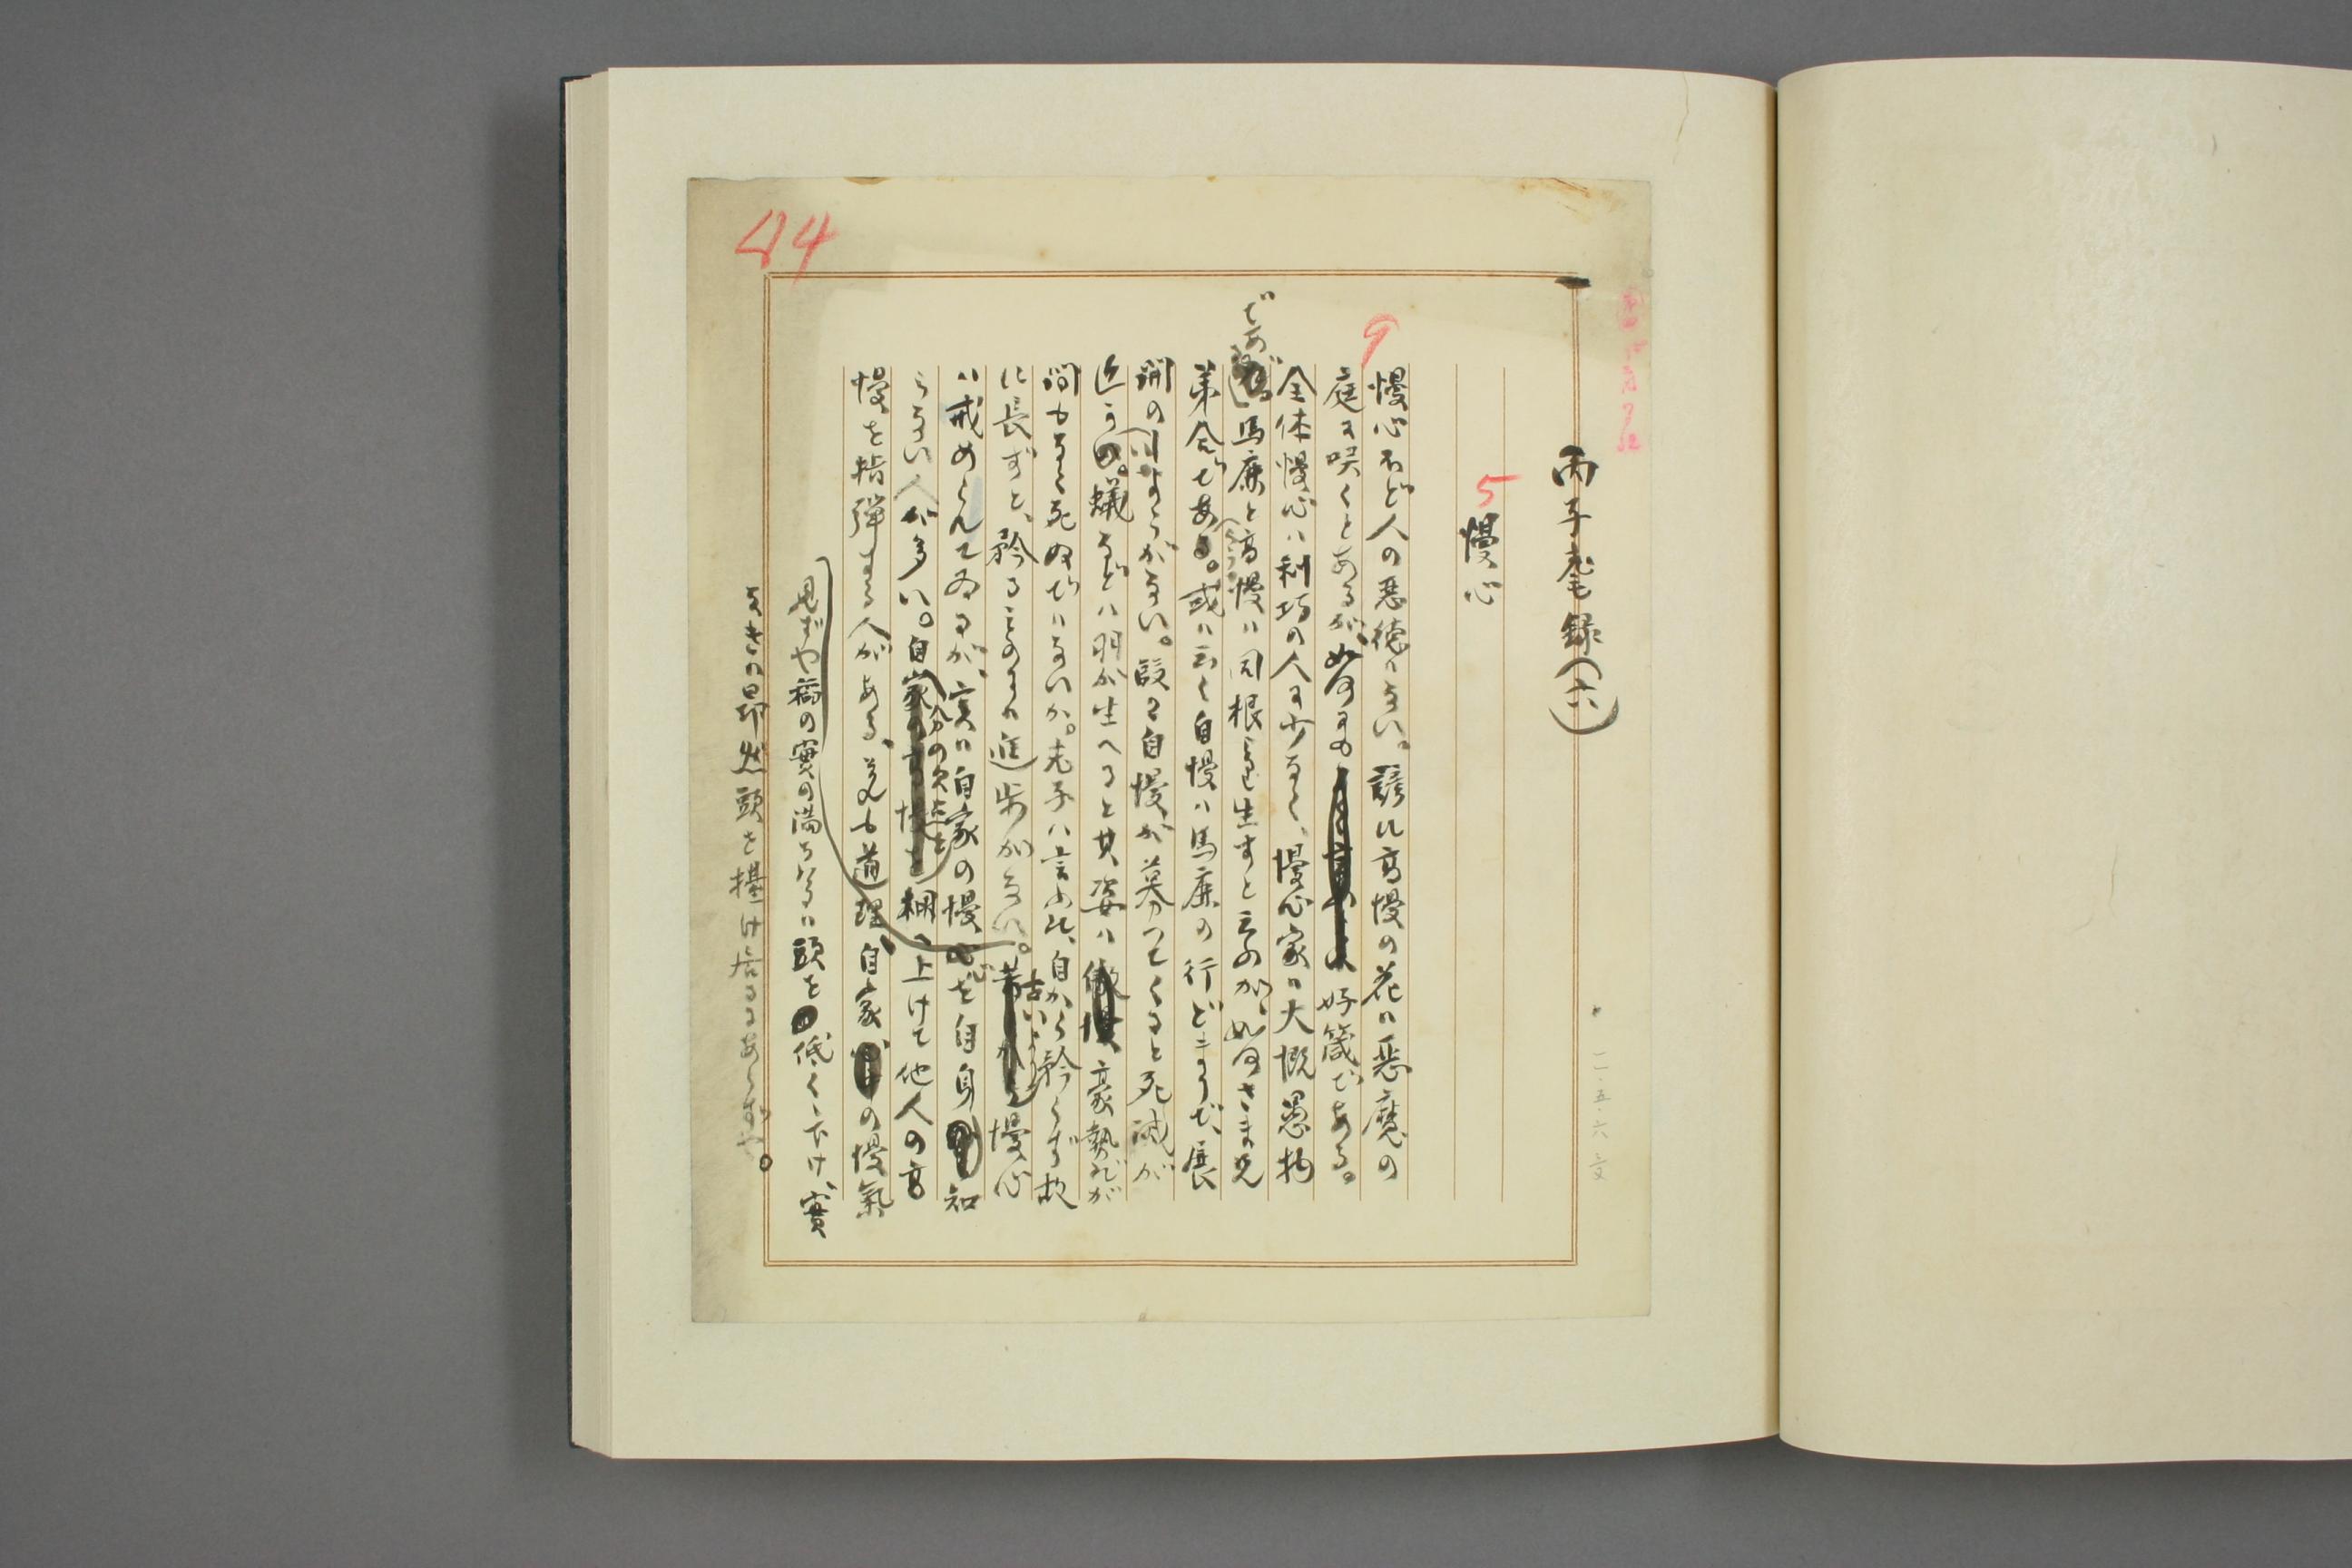 丙子耄録(六)
5 慢心
慢心ほど人の惡徳はない。諺に高慢の花は惡魔の
庭に咲くとあるが、如何にも好箴である。
全体慢心は利巧の人に少なく、慢心家は大概愚物
である。馬鹿と高慢は同根に生ずと云ふが、如何さま兄
弟分である。或は云く自慢は馬鹿の行どまりで、展
開の よ がない。殴に自慢が募つてくると死滅が
近づく。蟻などは羽が生へると其姿は豪勢だが
間もなく死ぬではないか。老子は言ふた、自から矜らず故
に長ずと、矜ることのまゝ進歩がない。古いより慢心
は戒めらんてゐるが、実は自家の慢心を自身知
らない人が多い。自分の欠点を棚へ上けて他人の高
慢を指彈する人がある、是も道理、自家の慢氣
見ずや稲の實の満ちたるは頭を低く下け、實
なきは昂然頭を擡け居るにあらずや。
44
9
二・五・六